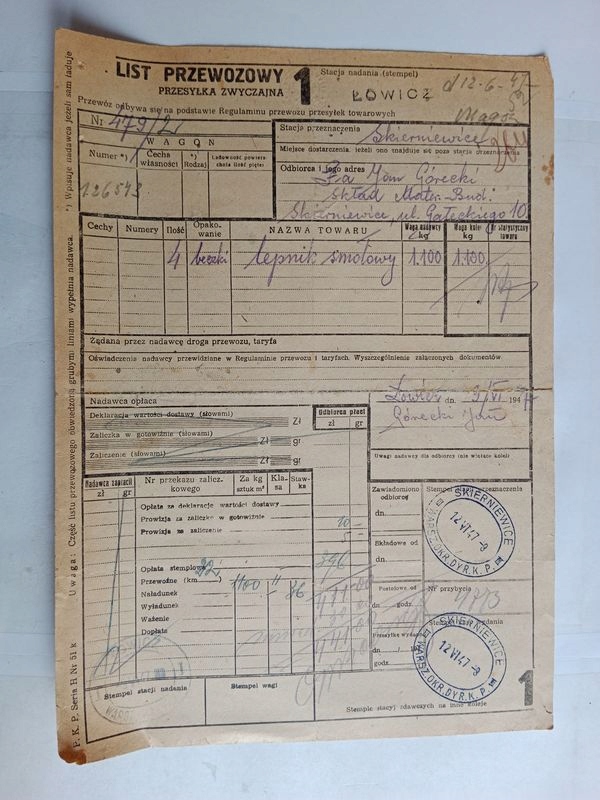 LIST PRZEWOZOWY
PRZESYŁKA ZWYCZAJNA
1
Stacja nadania (stempel)
ŁOWICZ
d 12-6-47
Przewóz odbywa się na podstawie Regulaminu przewozu przesyłek towarowych
Nr 479/2
WAGON
Numer *)
Cecha własności
*) Rodzaj
126543
Stacja przeznaczenia Skierniewice
Miejsce dostarczenia, jeżeli ono znajduje się poza stacją przeznaczenia
Odbiorca i jego adres Fa Jan Górecki
Skład Mater. Bud.
Skierniewice, ul. Gałeckiego 10
Cechy Numery Ilość Opako-wanie NAZWA TOWARU Waga nadawcy kg Waga kolei kg Nr statystyczny towaru
4 beczki lepnik smołowy 1.100 1.100
Żądana przez nadawcę droga przewozu, taryfa
Oświadczenia nadawcy przewidziane w Regulaminie przewozu i taryfach. Wyszczególnienie załączonych dokumentów
Łowicz dn. 9/VI 1947
Górecki Jan
Nadawca opłaca
Deklaracja wartości dostawy (słowami)
Zł gr
Zaliczka w gotowiźnie (słowami)
Zł gr
Zaliczenie (słowami)
Zł gr
Odbiorca płaci
zł gr
Uwagi nadawcy dla odbiorcy (nie wiążące kolei)
Nadawca zapłacił
zł gr
Nr przekazu zalicz-kowego
Za kg sztuk m³
Kla-sa
Staw-ka
Opłata za deklarację wartości dostawy
Prowizja za zaliczkę w gotowiźnie
Prowizja za zaliczenie
10-
5-
Opłata stemplowa
396
Przewoźne (km) 22 1100 36
Naładunek
Wyładunek
Ważenie
Dopłata
Zawiadomiono odbiorcę
dn.
Składowe od
dn.
Postojowe od
dn. godz.
Przesyłkę wydano
dn.
godz.
Stempel stacji przeznaczenia
SKIERNIEWICE
12 VI 47 -8
WARSZ.OKR.DYR.K.P.
Nr przybycia
4773
Stempel wydania
SKIERNIEWICE
12 VI 47 -8
WARSZ.OKR.DYR.K.P.
Stempel stacji nadania
Stempel wagi
Stemple stacyj zdawczych na inne koleje
1
*) Wypisuje nadawca jeżeli sam ładuje
Uwaga: Część listu przewozowego obwiedzioną grubymi liniami wypełnia nadawca.
P. K. P. Seria H Nr 51 k